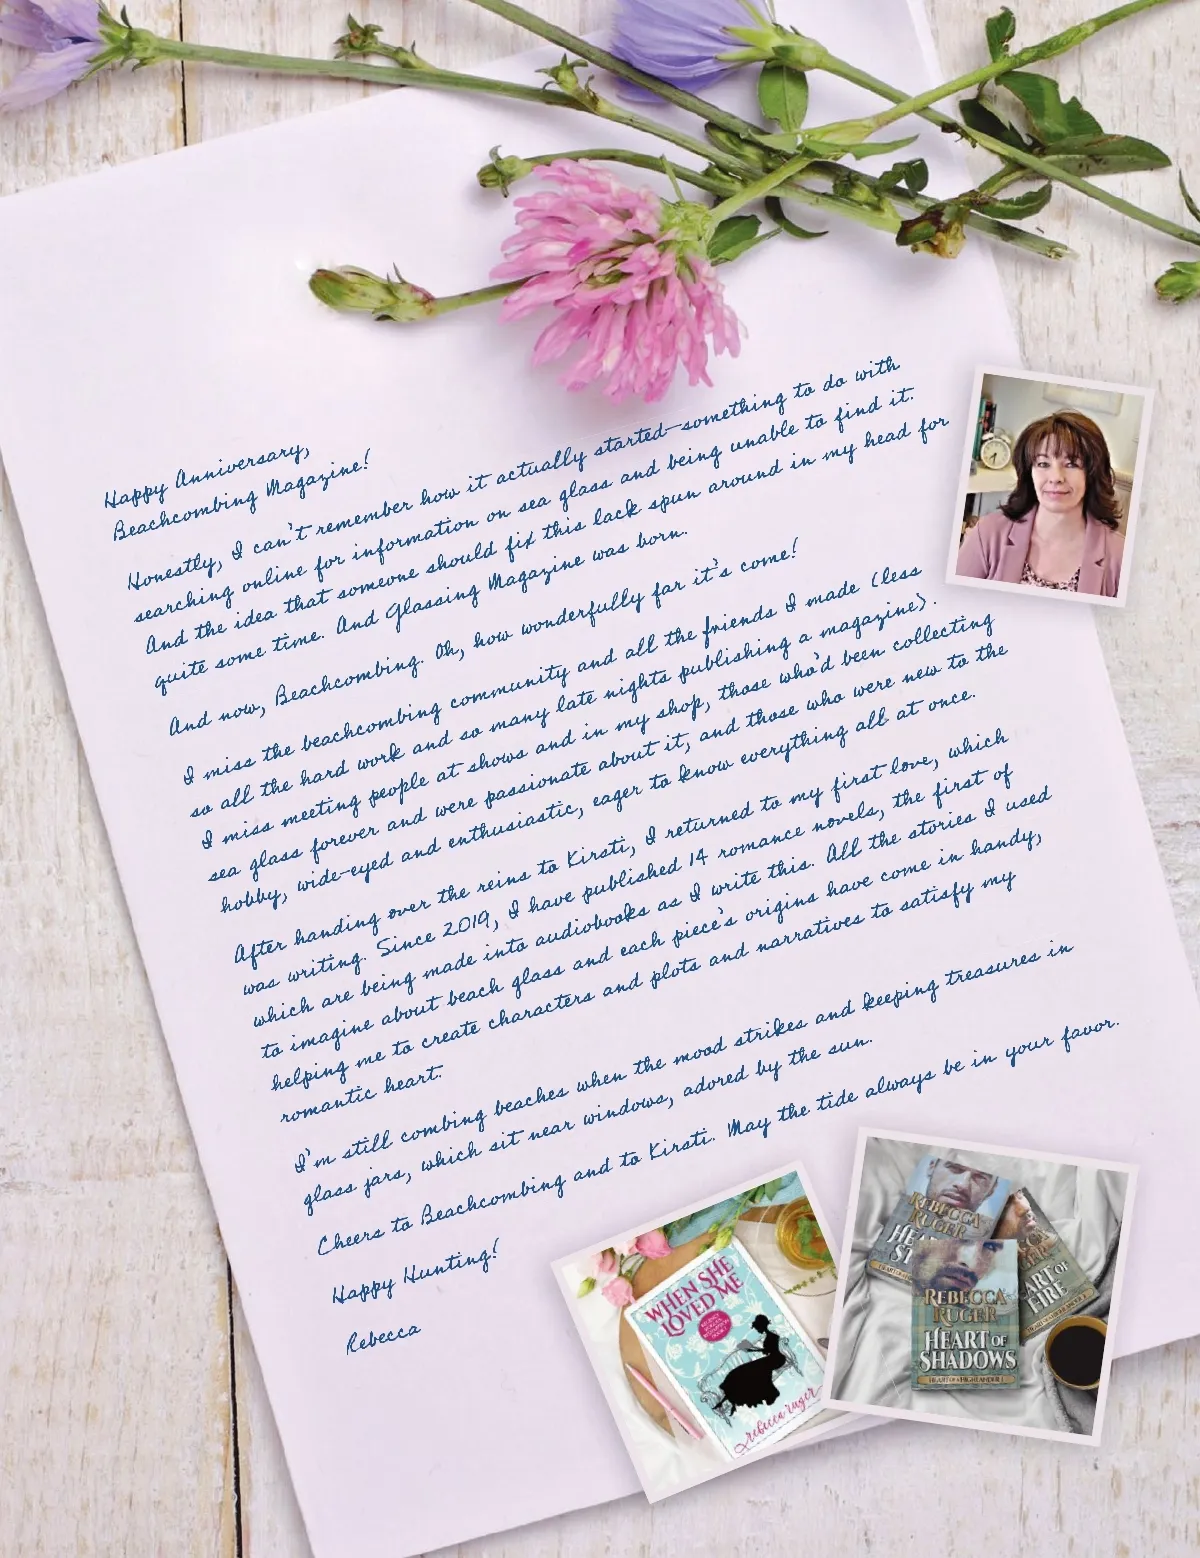 Happy Anniversary,
Beachcombing Magazine!
Honestly, I can't remember how it actually started—something to do with
searching online for information on sea glass and being unable to find it.
And the idea that someone should fix this lack spun around in my head for
quite some time. And Glassing Magazine was born.
And now, Beachcombing. Oh, how wonderfully far it's come!
I miss the beachcombing community and all the friends I made (less
so all the hard work and so many late nights publishing a magazine).
I miss meeting people at shows and in my shop, those who'd been collecting
sea glass forever and were passionate about it, and those who were new to the
hobby, wide-eyed and enthusiastic, eager to know everything all at once.
After handing over the reins to Kirsti, I returned to my first love, which
was writing. Since 2019, I have published 14 romance novels, the first of
which are being made into audiobooks as I write this. All the stories I used
to imagine about beach glass and each piece's origins have come in handy,
helping me to create characters and plots and narratives to satisfy my
romantic heart.
I'm still combing beaches when the mood strikes and keeping treasures in
glass jars, which sit near windows, adored by the sun.
Cheers to Beachcombing and to Kirsti. May the tide always be in your favor.
Happy Hunting!
Rebecca
WHEN SHE
LOVED ME
rebecca ruger
REBECCA
RUGER
HEART OF
FIRE
REBECCA
RUGER
HEART OF
SHADOWS
HEART OF A HIGHLANDER